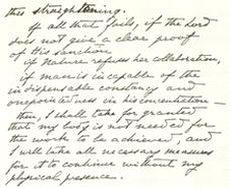 this straightening.
If all that fails, if the Lord
does not give a clear proof
of His sanction
if Nature refuses her collaboration,
if man is incapable of the
indispensable constancy and
onepointedness in his concentration —
then, I shall take for granted
that my body is not needed for
the work to be achieved, and
I will take all necessary measures
for it to continue without my
physical presence.